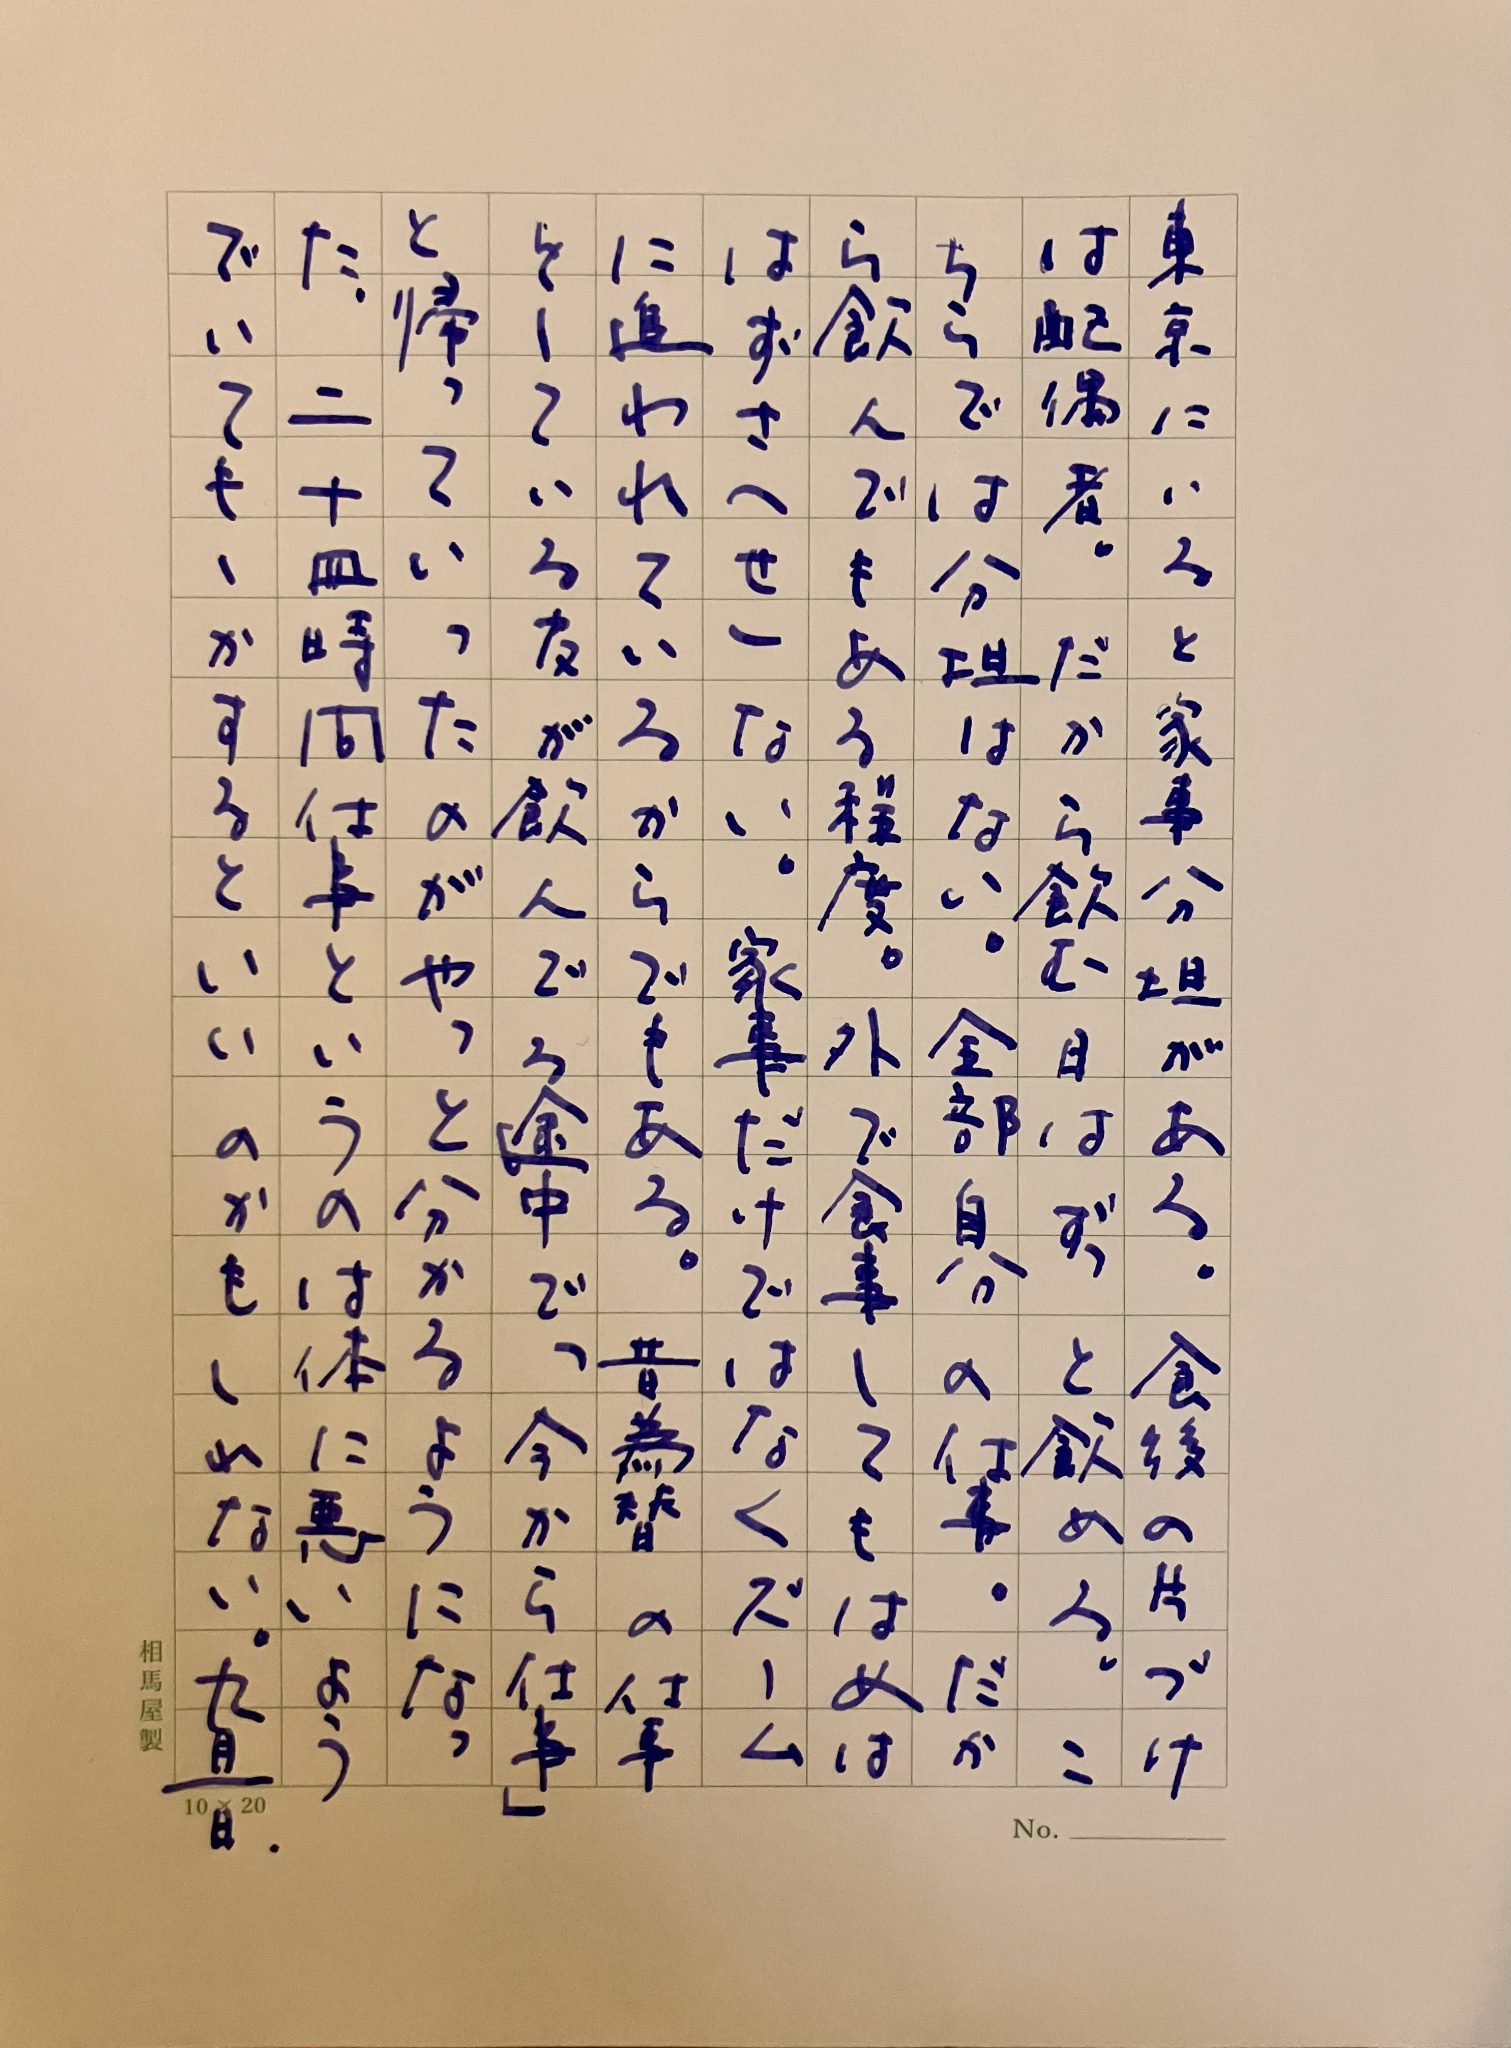 東京にいると家事分担がある。食後の片づけ
は配偶者。だから飲む日はずっと飲める。こ
ちらでは分担はない。全部自分の仕事。だか
ら飲んでもある程度。外で食事してもはめは
はずさへせーない。家事だけではなくズーム
に追われているからでもある。昔為替の仕事
をしている友が飲んでる途中で「今から仕事」
と帰っていったのがやっと分かるようになっ
た。二十四時間仕事というのは体に悪いよう
でいてもしかするといいのかもしれない。九月一日.
相馬屋製
10×20
No.